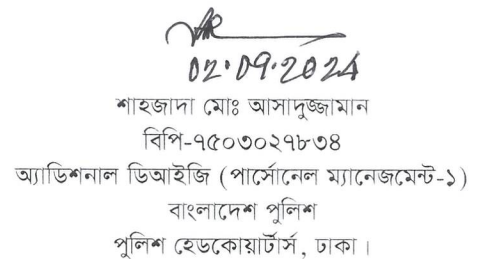 02.09.2024
শাহজাদা মোঃ আসাদুজ্জামান
বিপি-৭৫০৩০২৭৮৩৪
অ্যাডিশনাল ডিআইজি (পার্সোনেল ম্যানেজমেন্ট-১)
বাংলাদেশ পুলিশ
পুলিশ হেডকোয়ার্টার্স, ঢাকা।